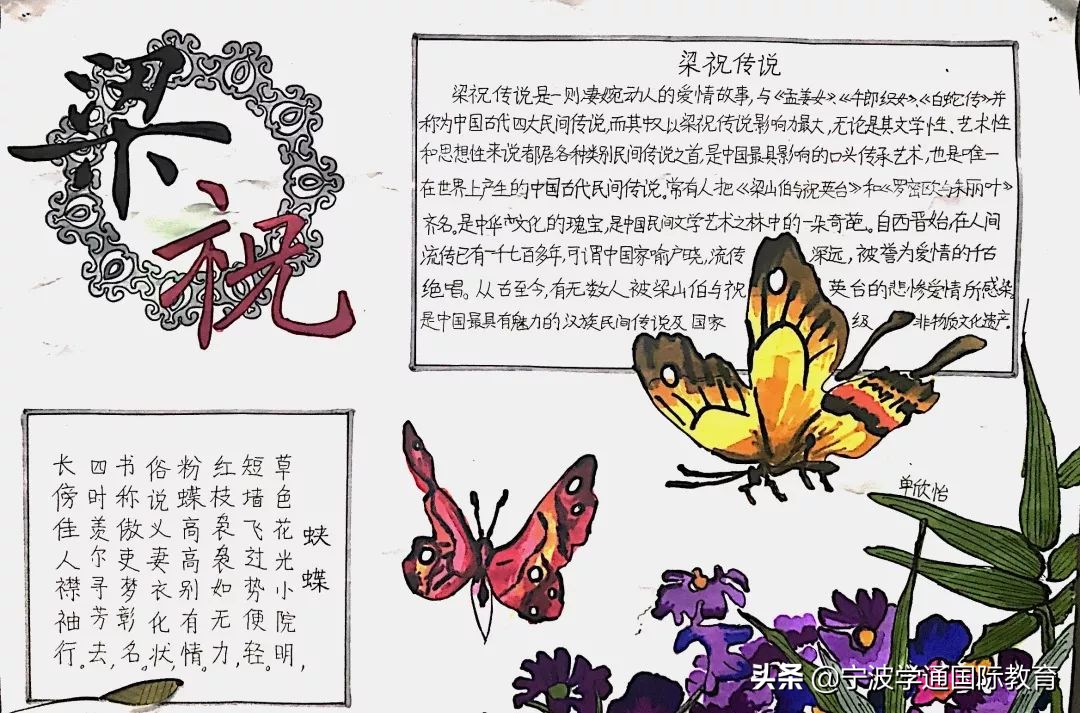 梁祝
梁祝传说
梁祝传说是一则凄婉动人的爱情故事,与《孟姜女》、《牛郎织女》、《白蛇传》并
称为中国古代四大民间传说,而其中又以梁祝传说影响力最大,无论是其文学性、艺术性
和思想性来说都居各种类别民间传说之首,是中国最具影响的口头传承艺术,也是唯一
在世界上产生的中国古代民间传说。常有人把《梁山伯与祝英台》和《罗密欧与朱丽叶》
齐名。是中华文化的瑰宝,是中国民间文学艺术之林中的一朵奇葩。自西晋始,在人间
流传已有一千七百多年,可谓中国家喻户晓,流传深远,被誉为爱情的千古
绝唱。从古至今,有无数人被梁山伯与祝英台的悲惨爱情所感染
是中国最具有魅力的汉族民间传说及国家级非物质文化遗产。
蛱蝶
草色花光小院明,
短墙飞过势便轻。
红枝袅袅如无力,
粉蝶高高别有情。
俗说义妻衣化状,
书称傲吏梦彰名。
四时羡尔寻芳去,
长傍佳人襟袖行。
单欣怡
头条 @宁波学通国际教育